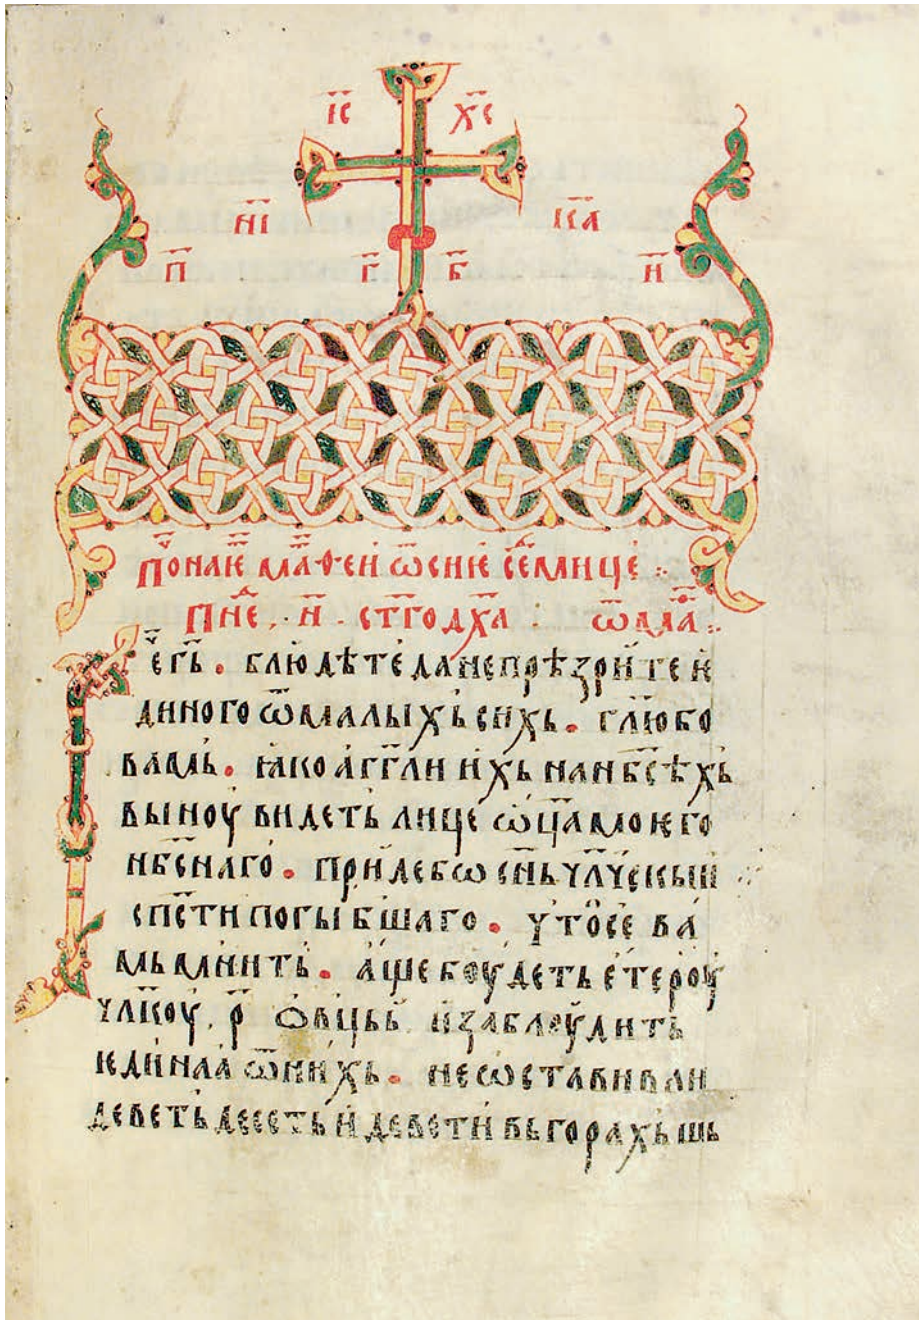 і҃с х҃с
ни ка
п г б н
понлѥ маѳеи ѿ сниѥ сеⷣмице
пнеⷣ · н · стго дха : ѿ маⷴ
рⷱе гь · блюдѣте да не прѣзрите ѥ
диного ѿ малыхь сихь · глю бо
вамь · ꙗко аггли ихь на нбсѣхь
выноу видеть лице ѡца моѥго
нбснаго · приде бѡ снь члчскыи
спсти погыбшаго · что се ва
мь мнить · аще боудеть етероу
члкоу р҃ ѡвць и заблоудить
ѥдина ѿ нихь · не ѡставив ли
деветь десеть и девети вь горахь шь